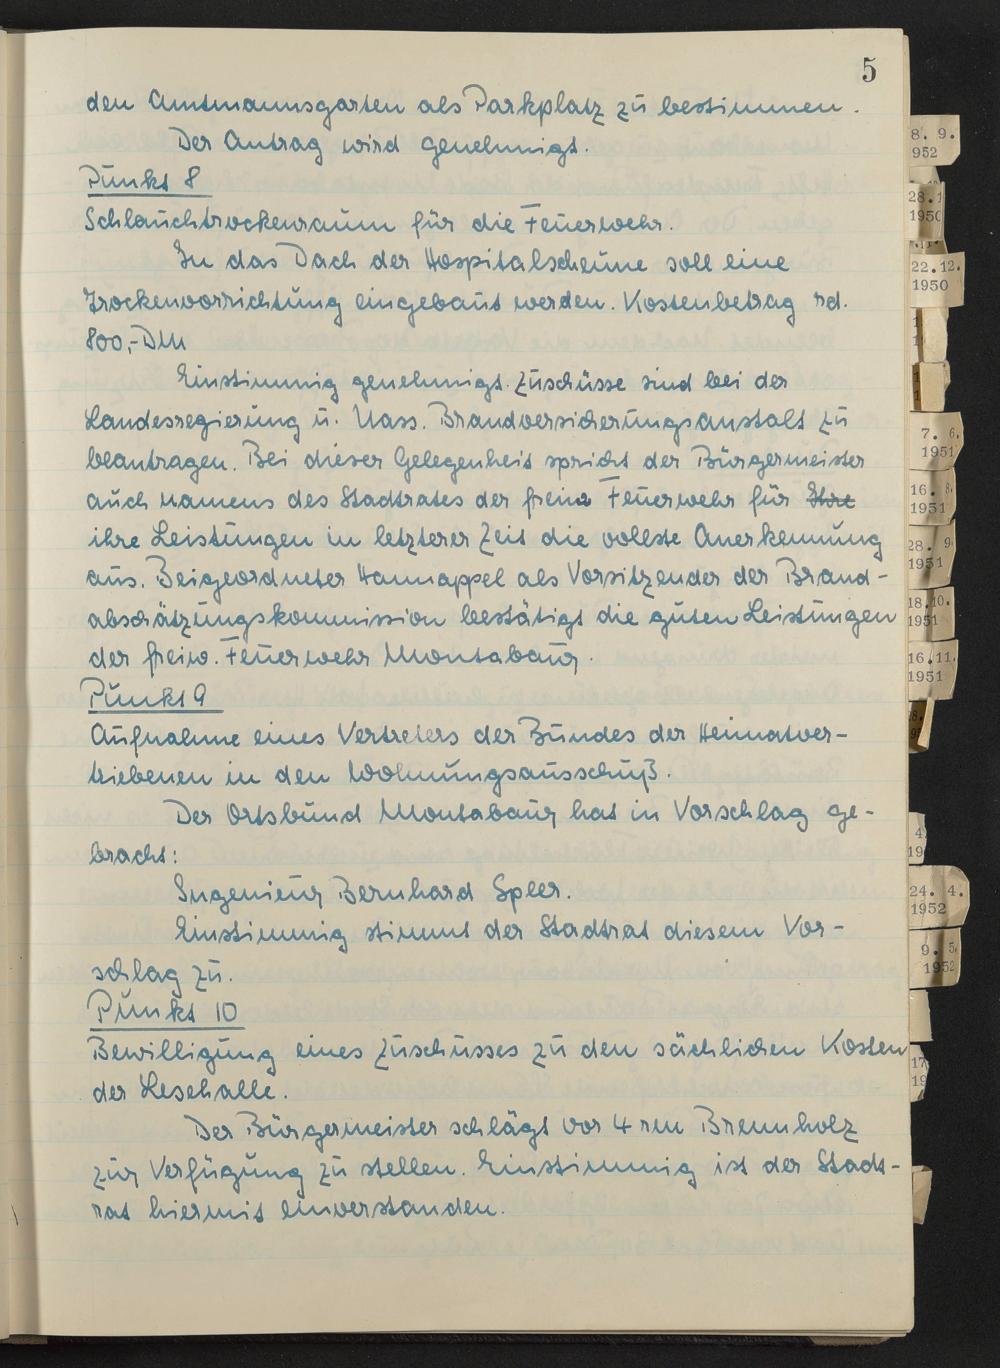 5
den Amtmannsgarten als Parkplatz zu bestimmen.
Der Antrag wird genehmigt.
Punkt 8
Schlauchtrockenraum für die Feuerwehr.
In das Dach der Hospitalscheune soll eine
Trockenvorrichtung eingebaut werden. Kostenbetrag rd.
800,- DM
Einstimmig genehmigt. Zuschüsse sind bei der
Landesregierung u. Nass. Brandversicherungsanstalt zu
beantragen. Bei dieser Gelegenheit spricht der Bürgermeister
auch namens des Stadtrates der freiw. Feuerwehr für Ihre
ihre Leistungen in letzterer Zeit die vollste Anerkennung
aus. Beigeordneter Hannappel als Vorsitzender der Brand-
abschätzungskommission bestätigt die guten Leistungen
der freiw. Feuerwehr Montabaur.
Punkt 9
Aufnahme eines Vertreters der Bundes der Heimatver-
triebenen in den Wohnungsausschuß.
Der Ortsbund Montabaur hat in Vorschlag ge-
bracht:
Ingenieur Bernhard Speer.
Einstimmig stimmt der Stadtrat diesem Vor-
schlag zu.
Punkt 10
Bewilligung eines Zuschusses zu den sächlichen Kosten
der Lesehalle.
Der Bürgermeister schlägt vor 4 rm Brennholz
zur Verfügung zu stellen. Einstimmig ist der Stadt-
rat hiermit einverstanden.
8. 9.
952
28.1
1950
22.12.
1950
7. 6.
1951
16. 8.
1951
28. 9
1951
18.10.
1951
16.11.
1951
24. 4.
1952
9. 5.
1952